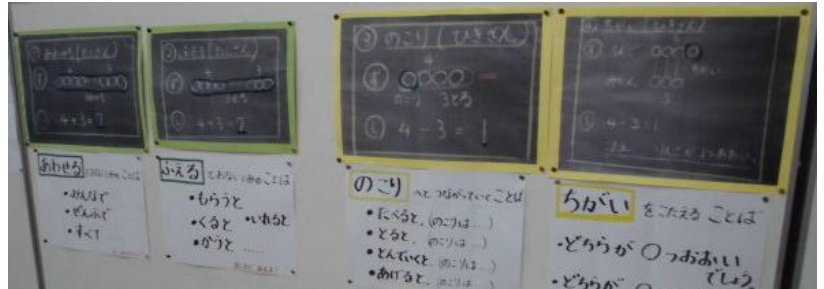 ① あわせる(たしざん)
ず
し 4+3=7
② ふえる(たしざん)
ず 4 3
3とる
し 4+3=7
③ のこり(ひきざん)
4
ず
のこり 3とる
し 4-3=1
ちがい(ひきざん)
ず
ちがい
3
し 4-3=1
りんごが1つおおい。
あわせる とおなじいみのことば
・みんなで
・ぜんぶで
・すべて
ふえる とおなじいみのことば
・もらうと
・くると ・いれると
・かうと ……
のこり へとつながっていくことば
・たべると、(のこりは…)
・とると、(のこりは…)
・とんでいくと(のこりは…)
・あげると、(のこりは…)
ちがい をこたえることば
・どちらが〇つおおい
でしょう
・どちらが〇